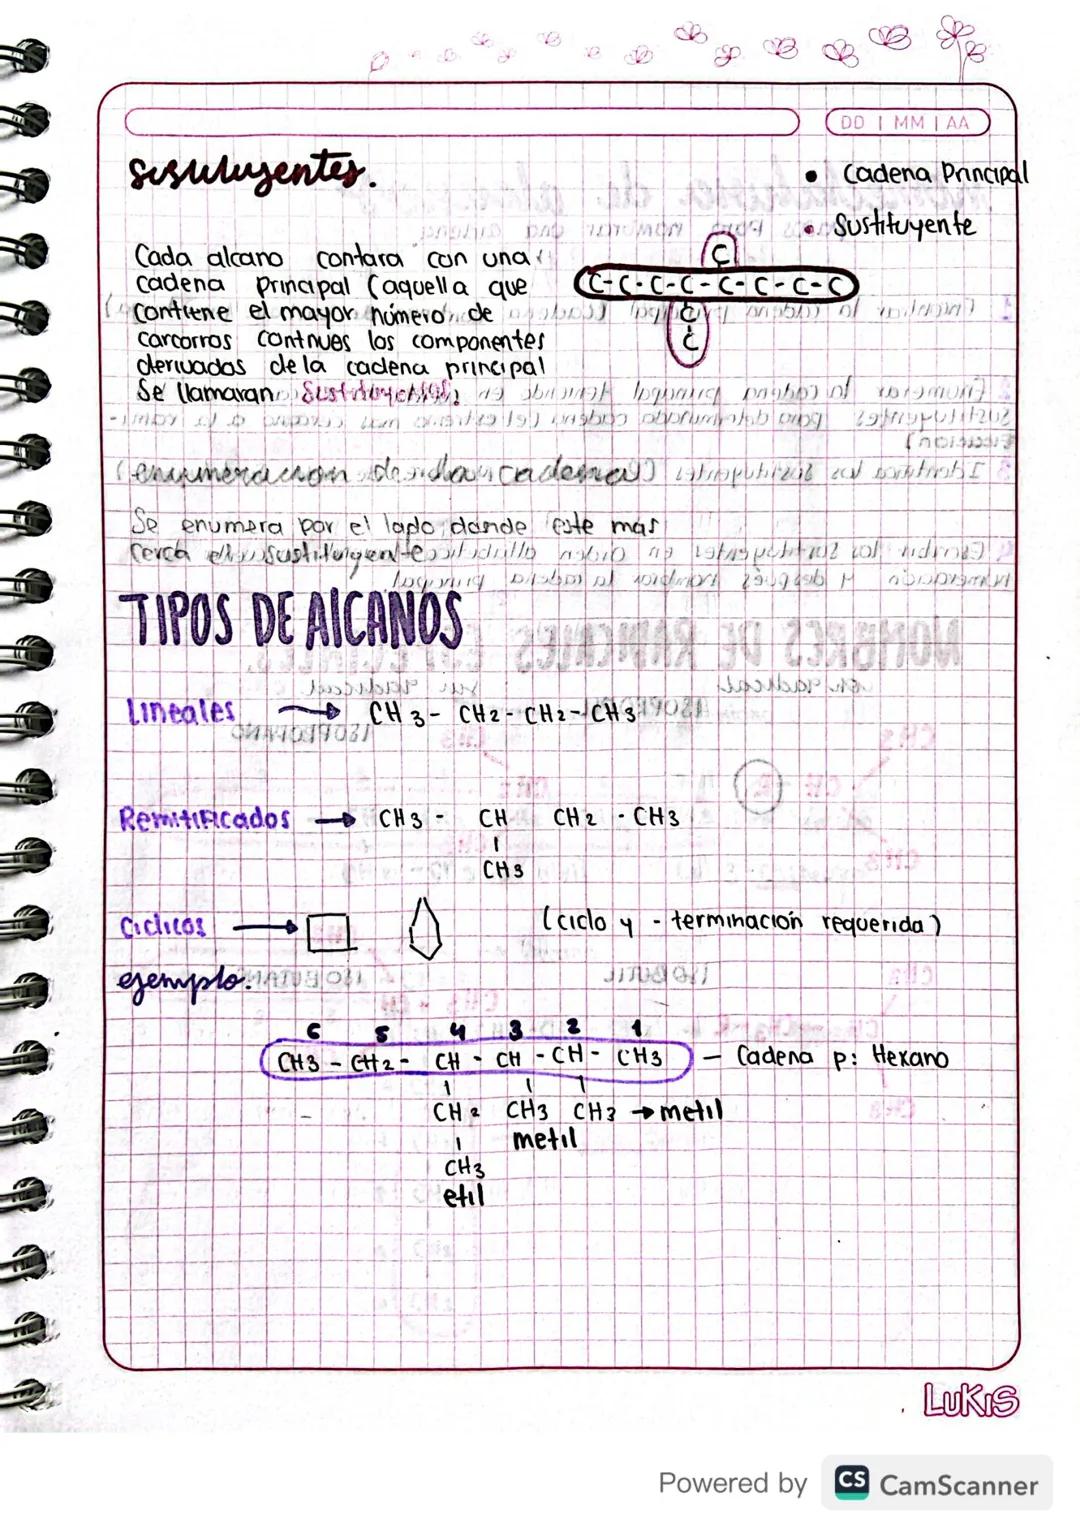 DD | MM | AA
sustituyentes.
• Cadena Principal
• Sustituyente
Cada alcano contara con una
cadena principal (aquella que
contiene el mayor número de
carcorros contnues los componentes
derivados de la cadena principal
Se llamaran Sustituyentes
C
C-C-C-C-C-C-C-C
C
C
(enumeracion de la cadena)
Se enumera por el lado donde este mas
cerca el sustituyente
TIPOS DE AlCANOS
Lineales → CH3 - CH2 - CH2 - CH3
Remitificados → CH3 - CH CH2 - CH3
CH3
Ciclicos → (ciclo y - terminación requerida)
ejemplo:
6 5 4 3 2 1
CH3 - CH2 - CH - CH - CH - CH3 — Cadena p: Hexano
CH2 CH3 CH3 → metil
metil
CH3
etil
LUKIS
Powered by CS CamScanner